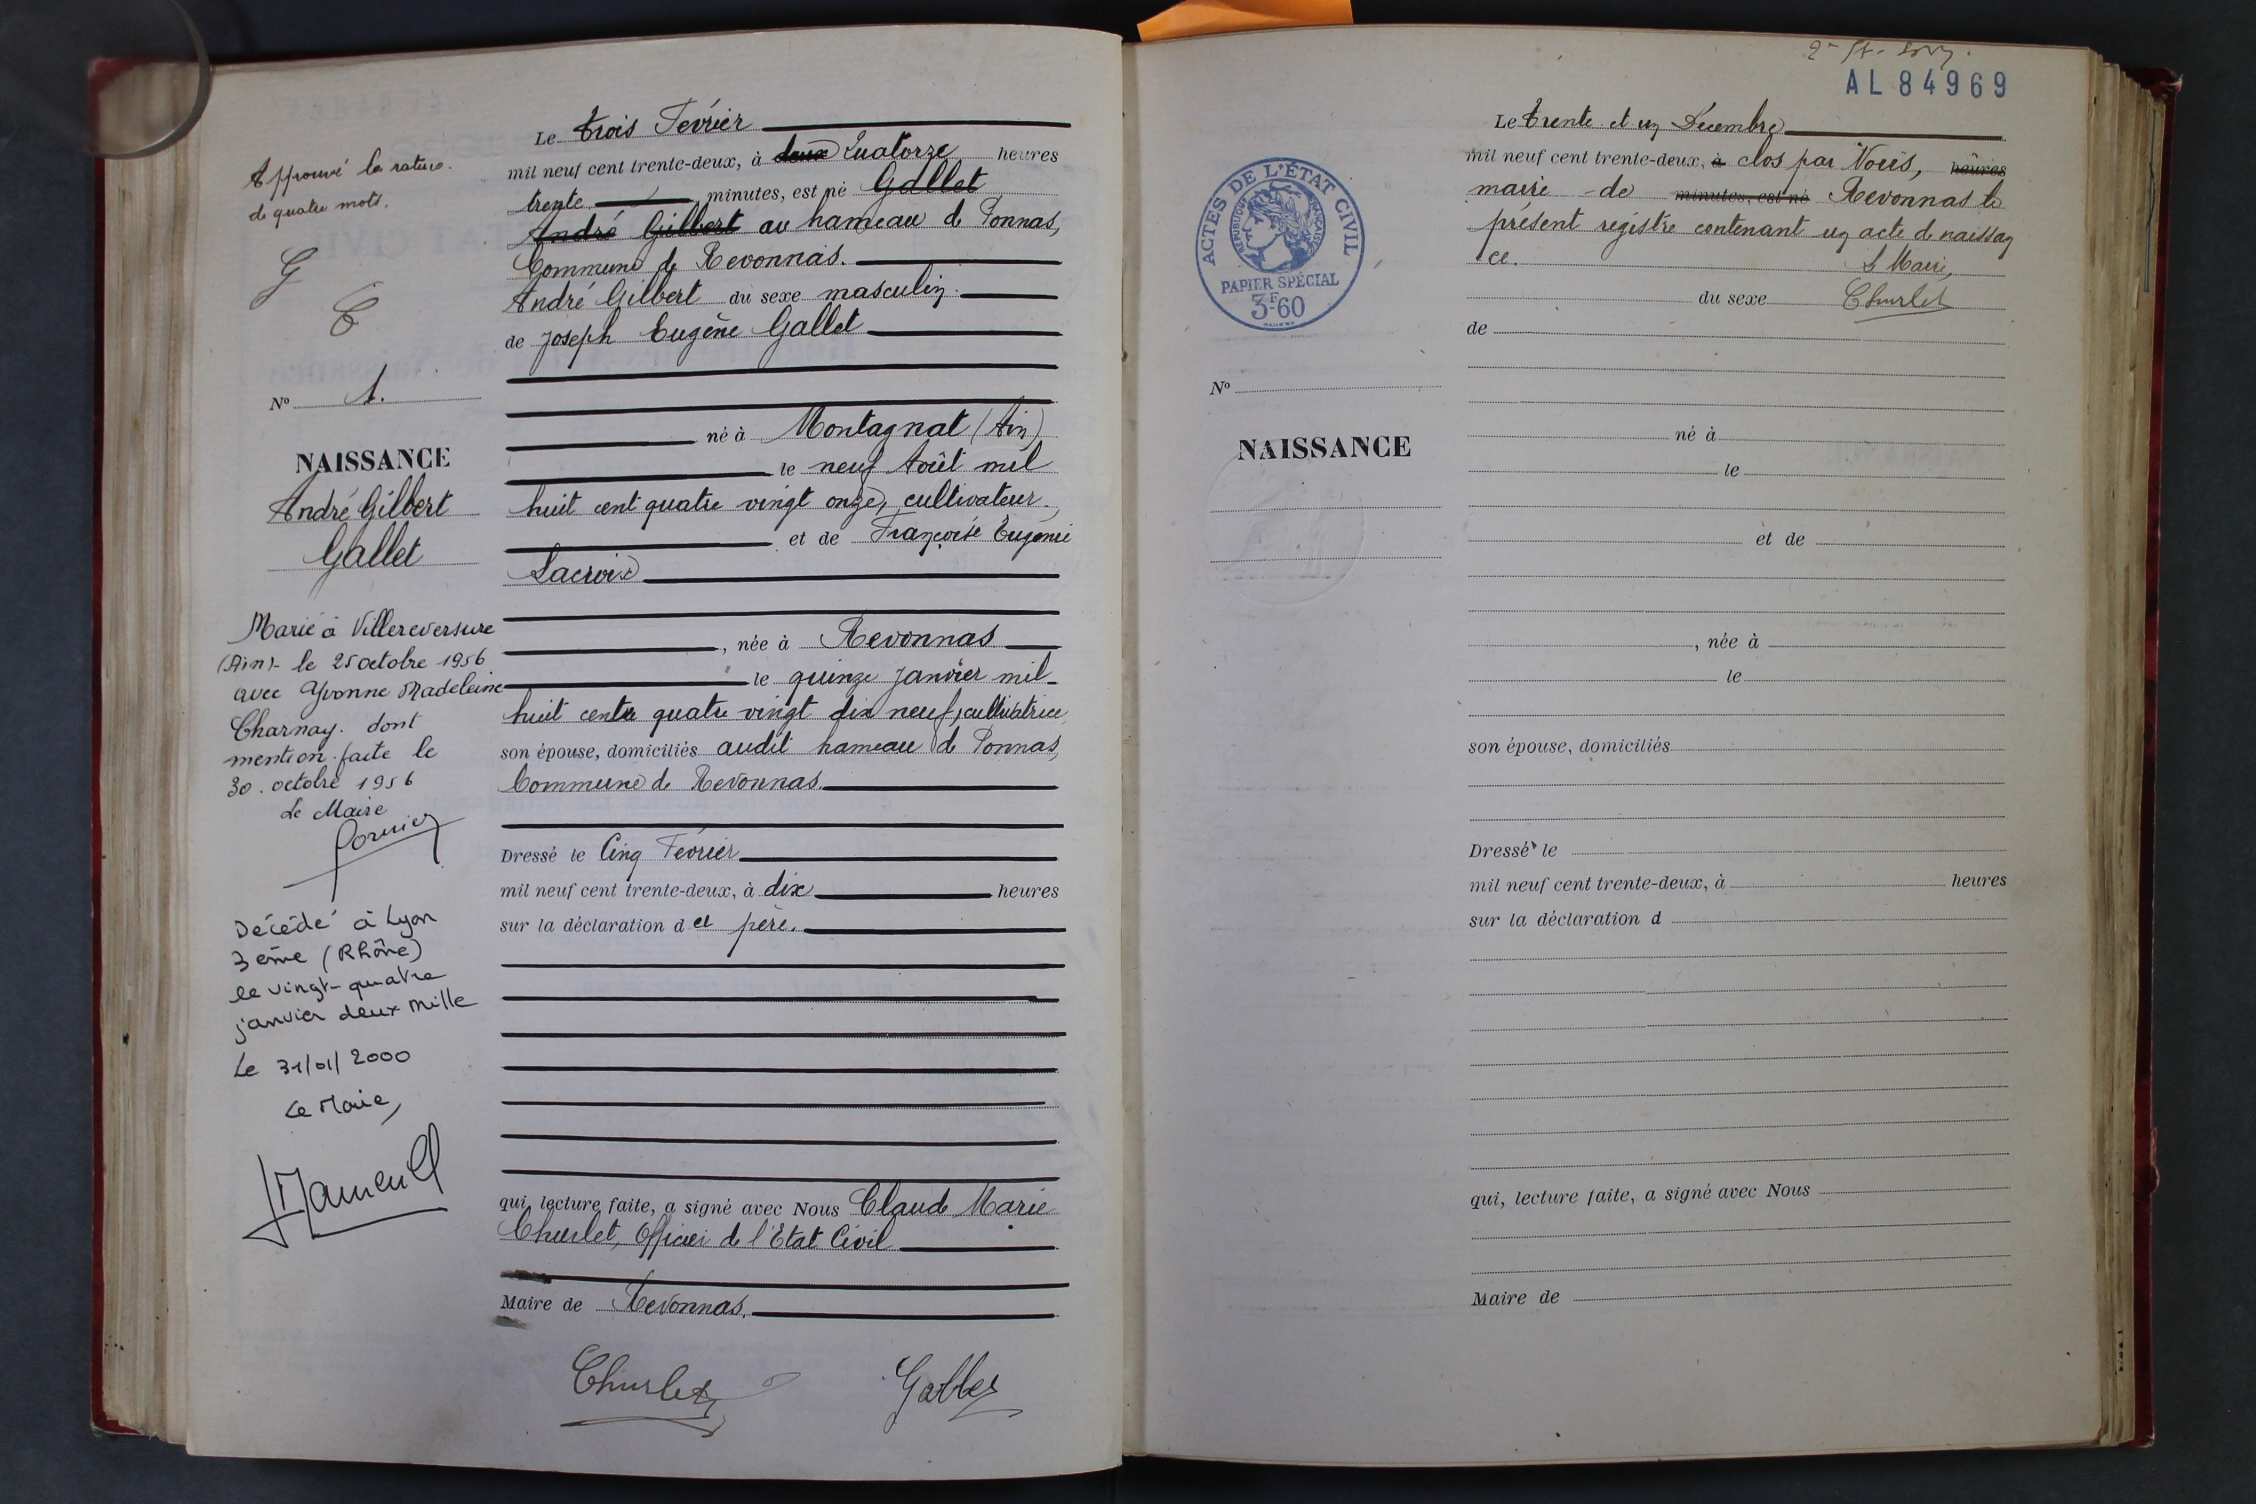 Approuvé la rature
de quatre mots.
G
C
N° 1.
NAISSANCE
André Gilbert
Gallet
Marié à Villereversure
(Ain) - le 25 octobre 1956
avec Yvonne Madeleine
Charnay. dont
mention faite le
30. octobre 1956
Le Maire
Décédé à Lyon
3ème (Rhône)
le vingt-quatre
janvier deux mille
Le 31/01/2000
Le Maire,
Le trois Février
mil neuf cent trente-deux, à deux Quatorze heures
trente minutes, est né Gallet
André Gilbert au hameau de Ponnas,
Commune de Revonnas.
André Gilbert du sexe masculin.
de Joseph Eugène Gallet
né à Montagnat (Ain)
le neuf Août mil
huit cent quatre vingt onze, cultivateur.
et de Françoise Eugénie
Lacroix
, née à Revonnas
le quinze janvier mil-
huit cent quatre vingt dix neuf, cultivatrice
son épouse, domiciliés audit hameau de Ponnas,
Commune de Revonnas.
Dressé le Cinq Février
mil neuf cent trente-deux, à dix heures
sur la déclaration d père.
qui, lecture faite, a signé avec Nous Claude Marie
Churlet, Officier de l'Etat Civil
Maire de Revonnas.
Churlet Gallet
AL 84969
ACTES DE L'ÉTAT CIVIL
RÉPUBLIQUE FRANÇAISE
PAPIER SPÉCIAL
3F60
N°
NAISSANCE
Le trente et un Décembre
mil neuf cent trente-deux, à clos par Nous, heures
maire - de minutes, est né Revonnas le
présent registre contenant un acte de naissan
ce. Le Maire,
du sexe Churlet
de
né à
le
et de
, née à
le
son épouse, domiciliés
Dressé le
mil neuf cent trente-deux, à heures
sur la déclaration d
qui, lecture faite, a signé avec Nous
Maire de